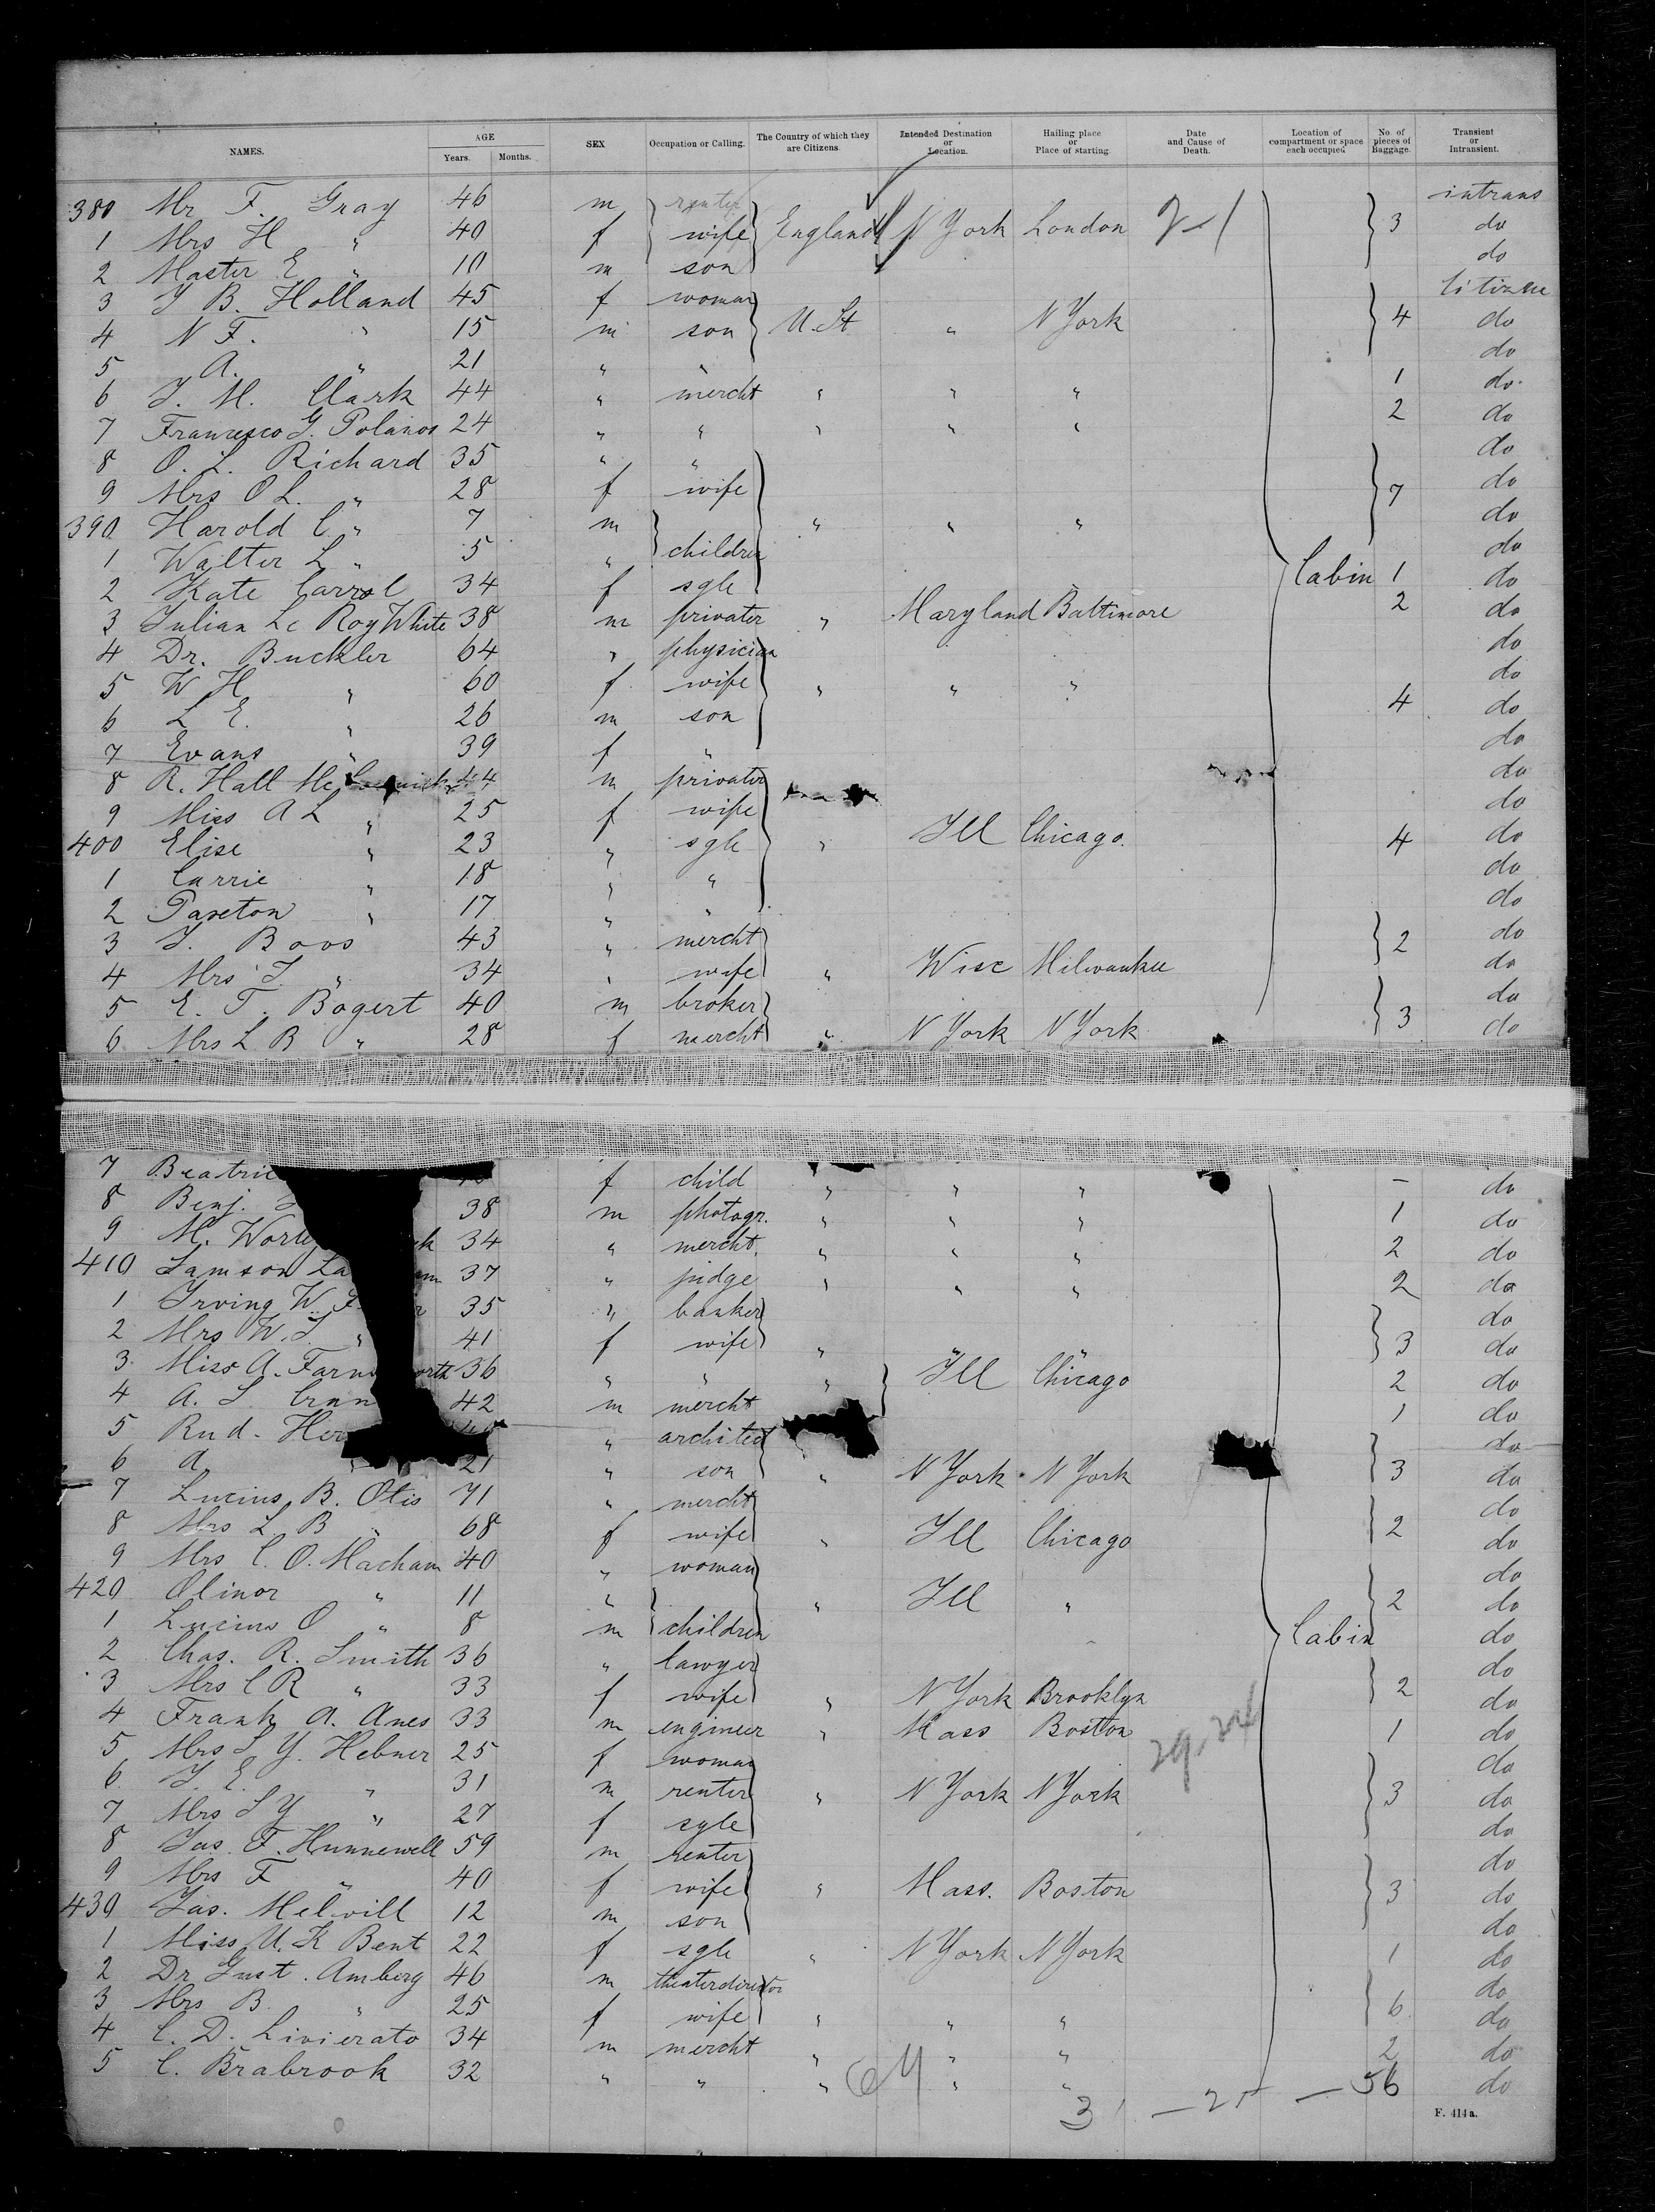 NAMES. AGE Years. Months. SEX Occupation or Calling. The Country of which they are Citizens. Intended Destination or Location. Hailing place or Place of starting. Date and Cause of Death. Location of compartment or space each occupied No. of pieces of Baggage. Transient or Intransient.
380 Mr F. Gray 46 m renter intrans
1 Mrs H " 40 f wife England N York London 3 do
2 Master E " 10 m son do
3 J B. Holland 45 f woman Citizne
4 N F. " 15 m son U. St " N York 4 do
5 A. " 21 " " do
6 J. M. Clark 44 " mercht " " " 1 do
7 Francesco G. Polanos 24 " " " " " 2 do
8 O. L. Richard 35 " " do
9 Mrs O L. " 28 f wife 7 do
390 Harold C " 7 m " " " do
1 Walter L " 5 " children do
2 Kate Carrol 34 f sgle Cabin 1 do
3 Julian Le Roy White 38 m privater " Maryland Baltimore 2 do
4 Dr. Buckler 64 " physician do
5 W H " 60 f wife " " " do
6 L E. " 26 m son 4 do
7 Evans " 39 f " do
8 R. Hall Mc 44 m privater do
9 Miss A L " 25 f wife do
400 Elise " 23 " sgle " Ill Chicago. 4 do
1 Carrie " 18 " " do
2 Paxeton " 17 " " do
3 J. Boos 43 " mercht 2 do
4 Mrs J. " 34 " wife " Wisc Milwaukee do
5 E. T. Bogert 40 m broker do
6 Mrs L B " 28 f mercht " N York N York 3 do
7 Beatric f child " " " – do
8 Benj. 38 m photogr. " " " 1 do
9 M. 34 " mercht. " " " 2 do
410 Samson 37 " judge " " " 2 do
1 Irving W. 35 " banker do
2 Mrs W. I. " 41 f wife " " " 3 do
3 Miss A. Farn orth 36 " " " Ill Chicago 2 do
4 A. S. 42 m mercht 1 do
5 Rud. " architect do
6 A 21 " son " N York N York 3 do
7 Lucius B. Otis 71 " mercht do
8 Mrs L B " 68 f wife " Ill Chicago 2 do
9 Mrs C. O. Macham 40 " woman do
420 Olinor " 11 " " Ill " 2 do
1 Lucius O " 8 m children Cabin do
2 Chas. R. Smith 36 " lawyer do
3 Mrs C R " 33 f wife " N York Brooklyn 2 do
4 Frank A. Anes 33 m engineer " Mass Boston 1 do
5 Mrs S Y. Hebner 25 f woman do
6 J. E. " 31 m renter " N York N York 3 do
7 Mrs S Y " 27 f sgle do
8 Jas. F. Hunnewell 59 m renter do
9 Mrs F " 40 f wife " Mass. Boston 3 do
430 Jas. Melvill 12 m son do
1 Miss U. K Bent 22 f sgle " N York N York 1 do
2 Dr Gust. Amberg 46 m theaterdirector do
3 Mrs B. " 25 f wife " " " 6 do
4 C. D. Livierato 34 m mercht " " " 2 do
5 C. Brabrook 32 " " " " " 56 do
3
F. 414a.